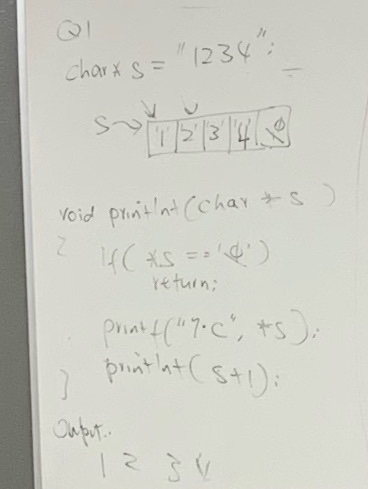 Q1
char* s = "1234";
s → '1' '2' '3' '4' \0
void printInt(char * s )
{ if( *s == '\0')
return;
printf("%c", *s);
printInt( s+1);
}
Output..
1 2 3 4